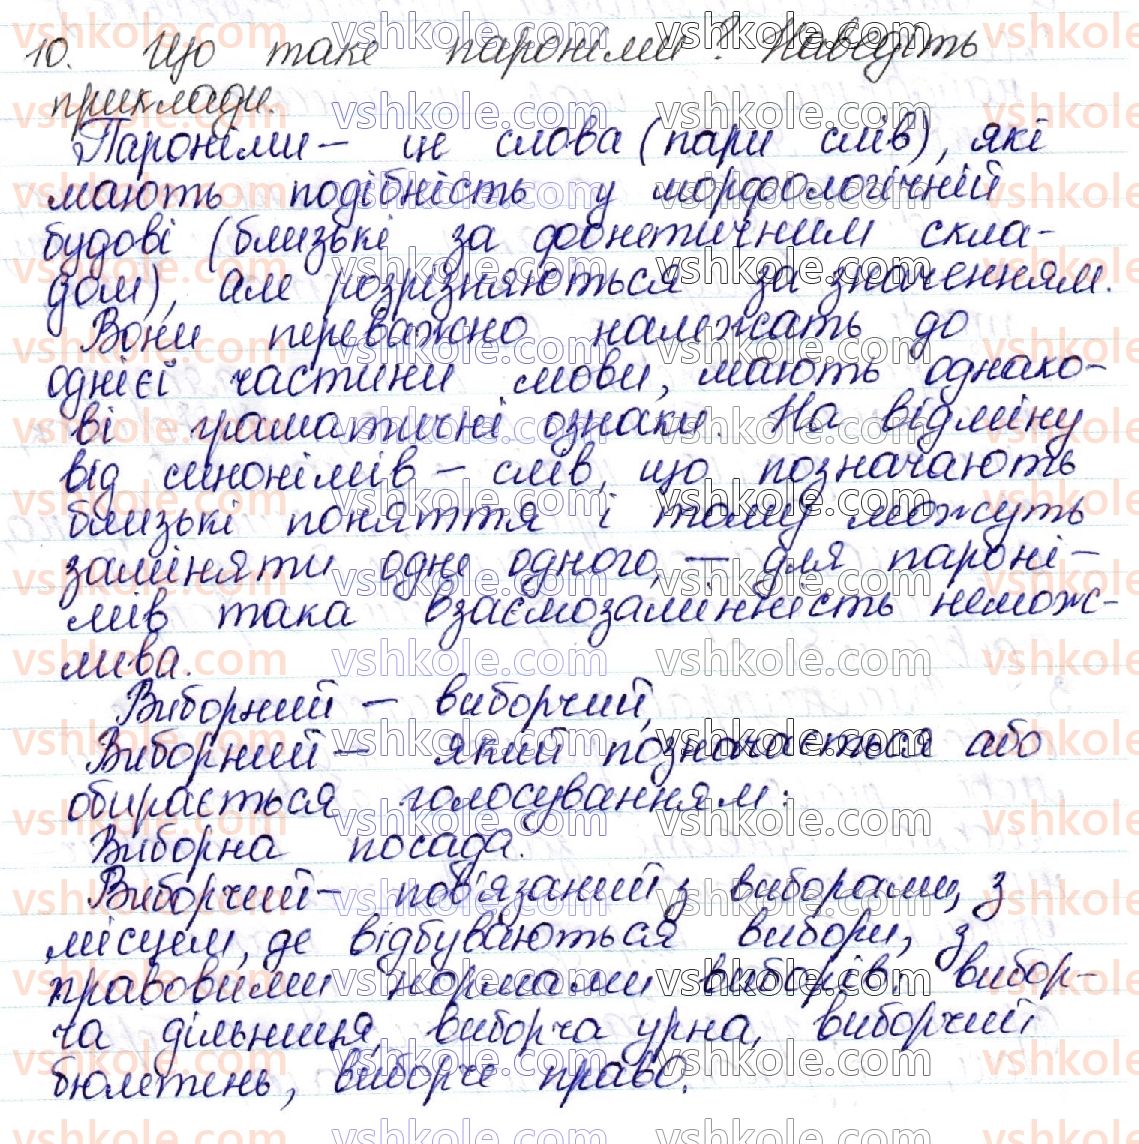 10. Що таке пароніми? Наведіть
приклади.
Пароніми – це слова (пари слів), які
мають подібність у морфологічній
будові (близькі за фонетичним скла-
дом), але розрізняються за значенням.
Вони переважно належать до
однієї частини мови, мають однако-
ві граматичні ознаки. На відміну
від синонімів – слів, що позначають
близькі поняття і тому можуть
заміняти одне одного, – для пароні-
мів така взаємозамінність немож-
лива.
Виборний – виборчий,
Виборний – який позначається або
обирається голосуванням:
Виборна посада.
Виборчий – пов'язаний з виборами, з
місцем, де відбуваються вибори, з
правовими нормами виборів: вибор-
ча дільниця, виборча урна, виборчий
бюлетень, виборче право.
vshkole.com